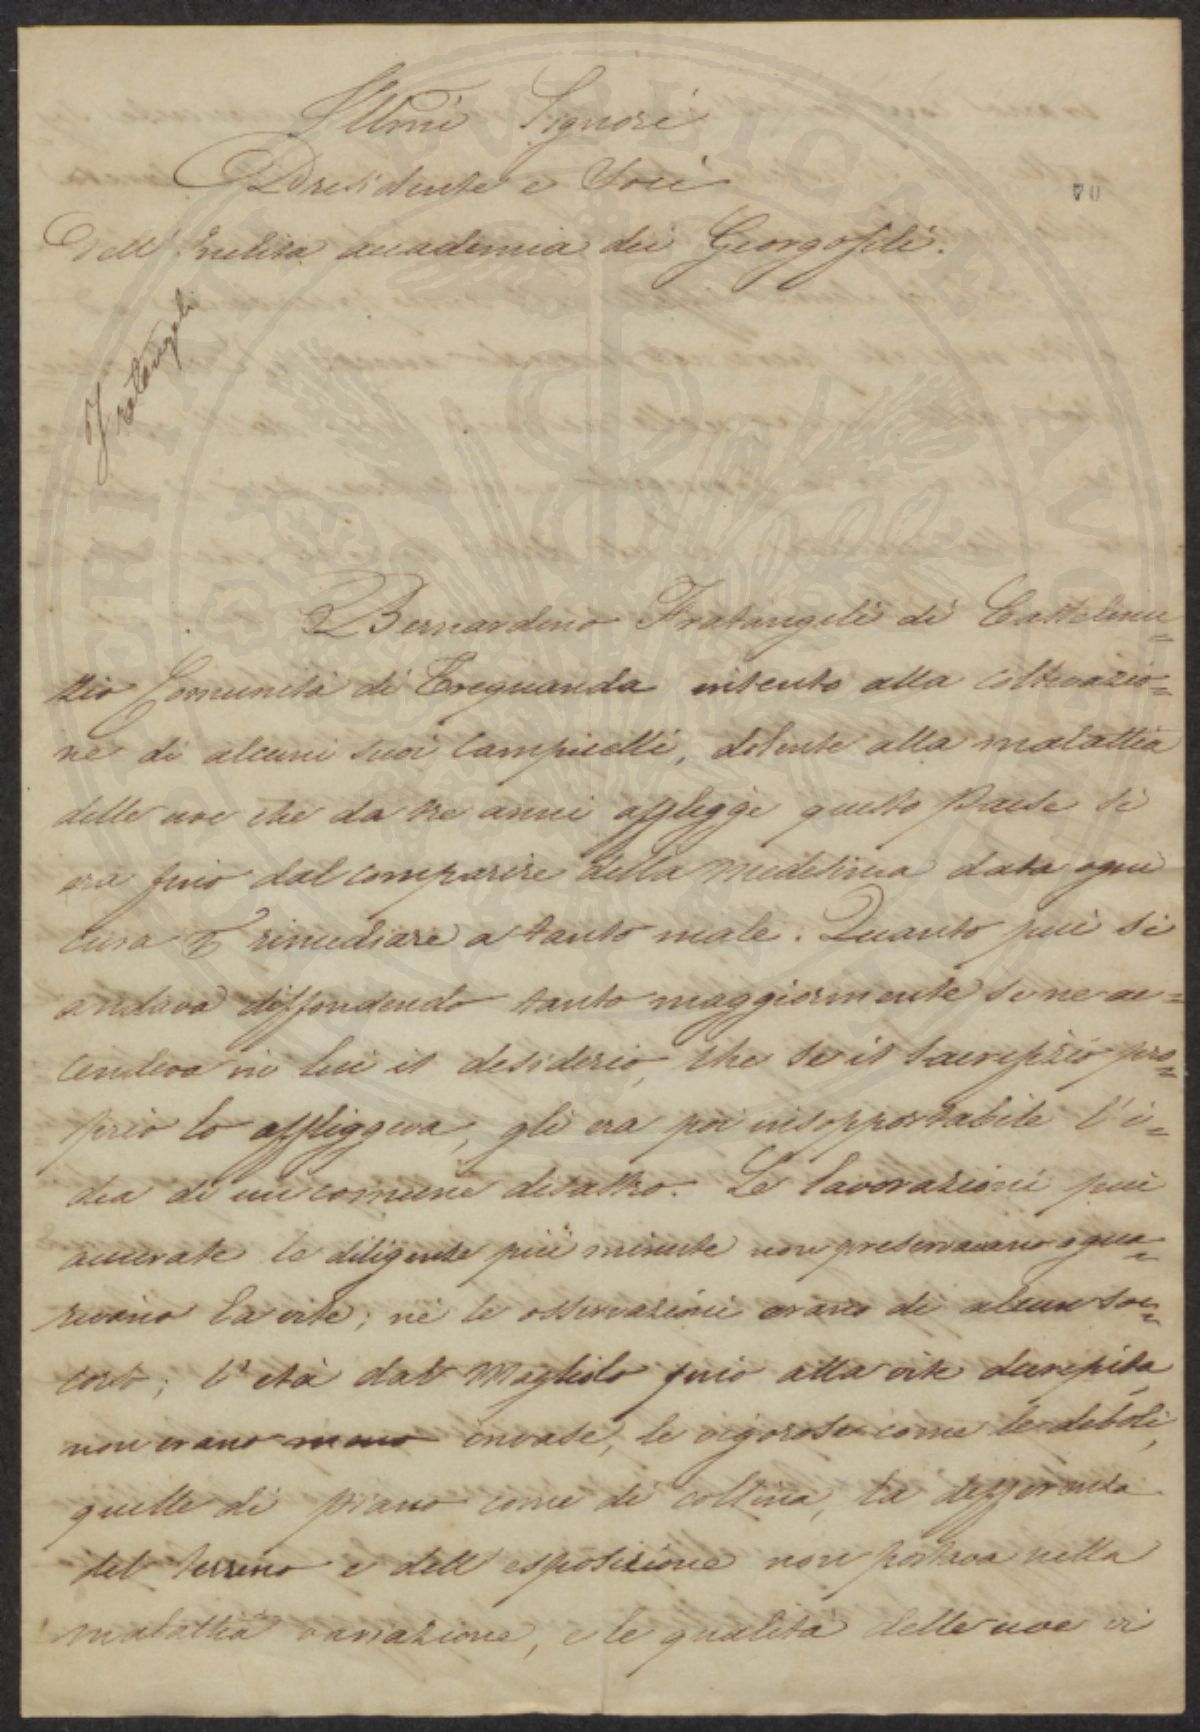 Illmi Signori
Presidente e Soci
70
Dell' Inclita accademia dei Georgofili.
Fratangeli
Bernardino Fratangeli di Castelmu=
zio Comunità di Trequanda intento alla coltivazio=
ne di alcuni suoi Campicelli, dolente alla malattia
delle uve che da tre anni affligge questo Paese si
era fino dal comparire della medesima data ogni
cura rimediare a tanto male. Quanto più si
andava diffondendo tanto maggiormente se ne ac=
cendeva in lui il desiderio, che se il sacrifizio pro=
prio lo affliggeva, gli era poi insopportabile l'i=
dea di un comune disastro. Le lavorazioni più
accurate le diligenze più minute non preservavano o gua=
rivano la vite; nè le osservazioni erano di alcun soc=
corso; l'età dal Magliolo fino alla vite decrepita
non erano meno invase, le vigorose come le deboli,
quelle di piano come di collina, la differenza
del terreno e dell' esposizione non portava nella
malattia variazione, e le qualità delle uve vi
PVBLICAE AVG